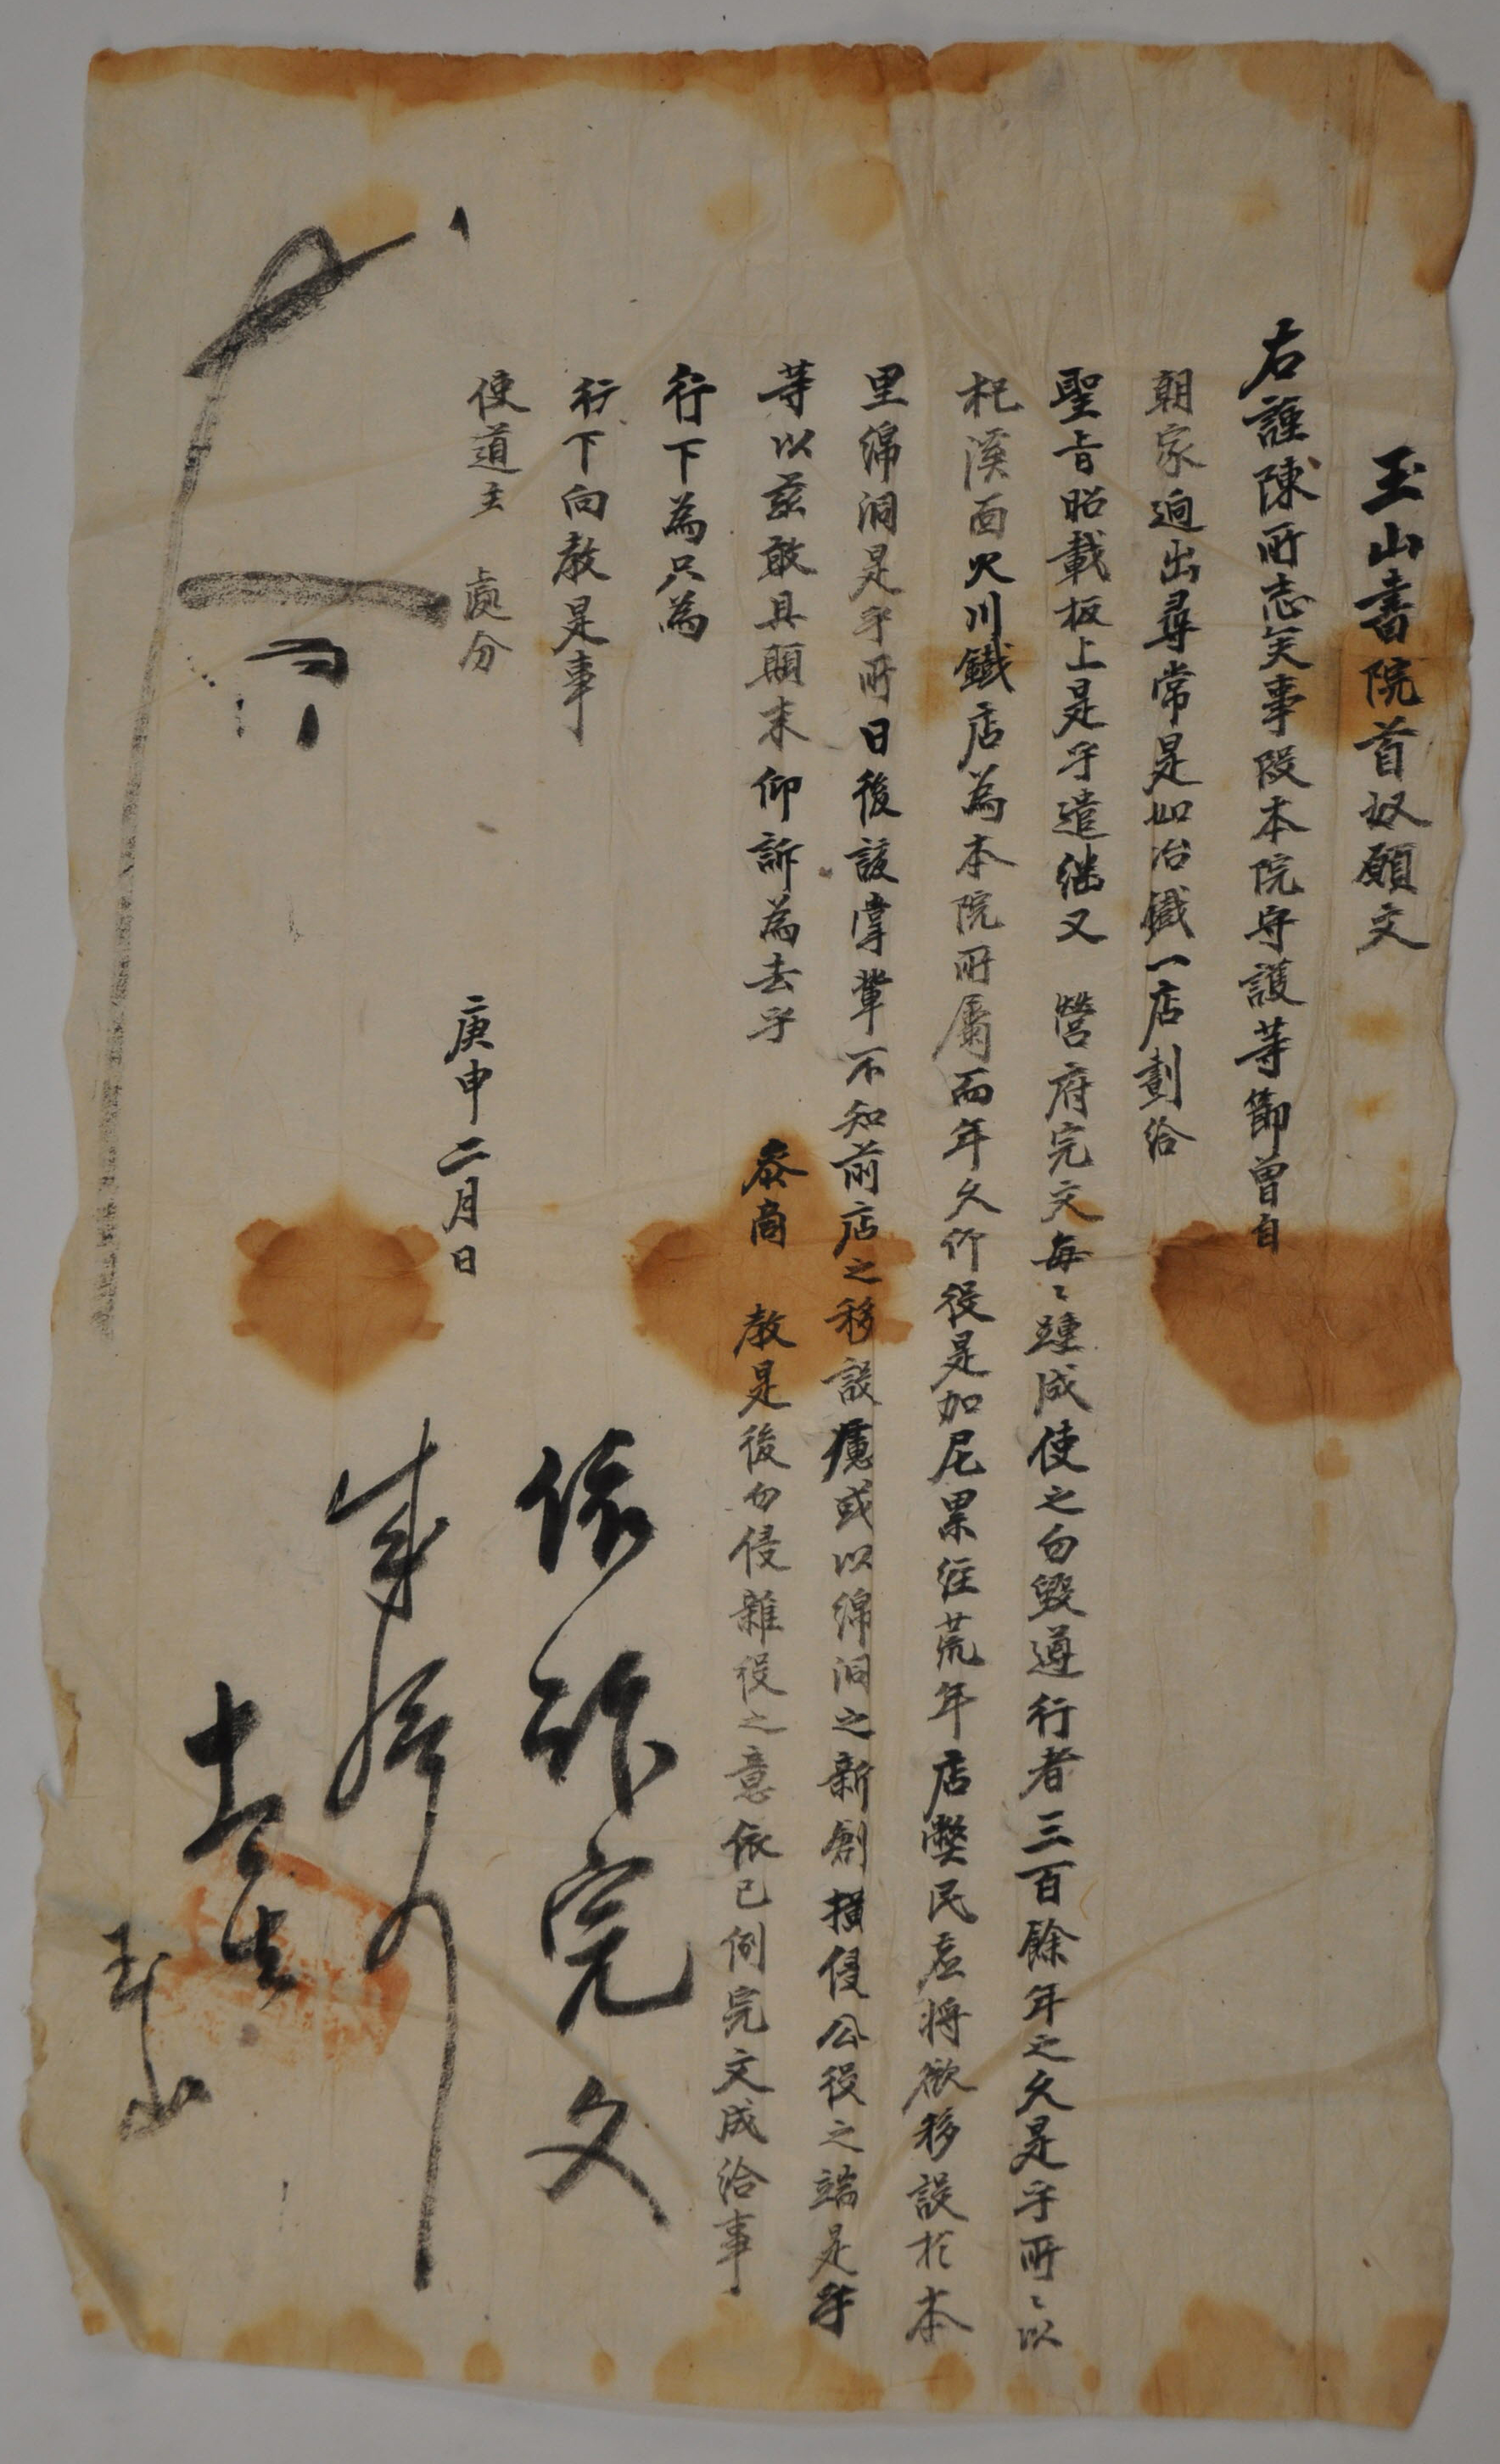 玉山書院首奴願文
右謹陳所志矣事段本院守護等節曾自
朝家逈出尋常是如冶鐵一店劃給
聖旨昭載板上是乎遣継又 營府完文每〻踵成使之勿毀遵行者三百餘年之久是乎所〻以
杞溪面火川鐵店為本院所屬而年久作役是加尼累經荒年店獘民
將欲移設於本
里綿洞是乎所日後該掌輩不知前店之移設
或以綿洞之新創橫侵公役之端是乎
等以玆敢具顚末仰訴為去乎 叅商 教是後勿侵雜役之意依已例完文成給事
行下為只為
行下向教是事
使道主 處分
庚申二月日
依訴完文
成給向事
十五日
玉山